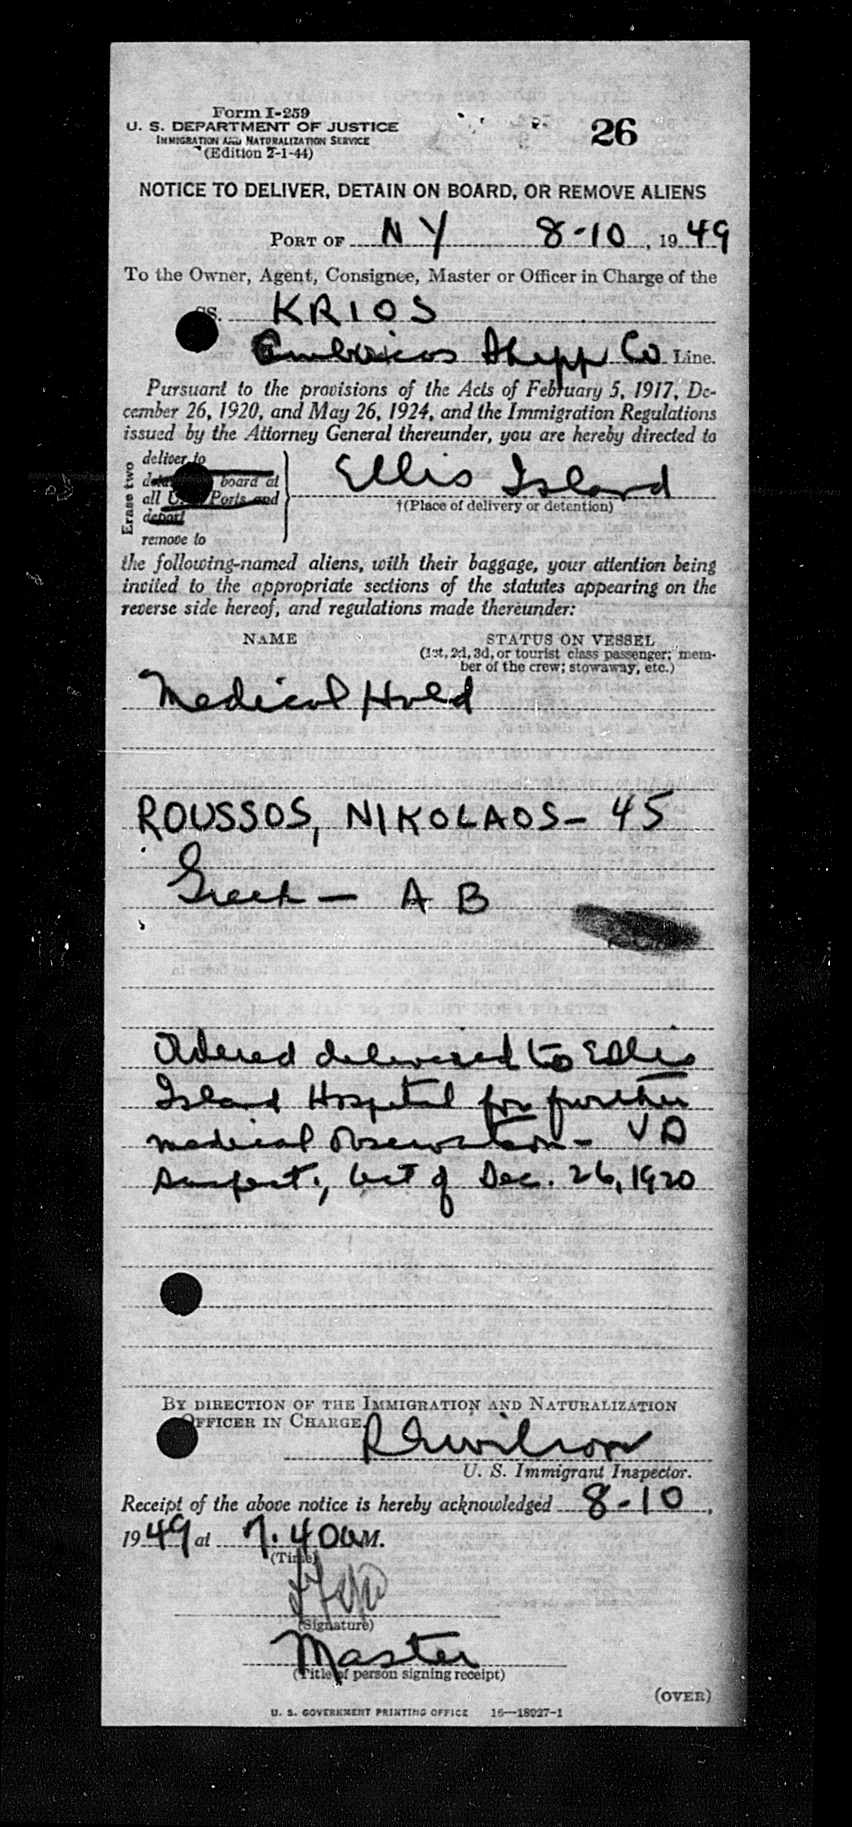 Form I-259
U. S. DEPARTMENT OF JUSTICE
IMMIGRATION AND NATURALIZATION SERVICE
(Edition 2-1-44)
26
NOTICE TO DELIVER, DETAIN ON BOARD, OR REMOVE ALIENS
PORT OF NY 8-10, 1949
To the Owner, Agent, Consignee, Master or Officer in Charge of the
SS. KRIOS
Embiricos Shipp Co Line.
Pursuant to the provisions of the Acts of February 5, 1917, De-
cember 26, 1920, and May 26, 1924, and the Immigration Regulations
issued by the Attorney General thereunder, you are hereby directed to
Erase two
deliver to
board at
all Ports and
deport
remove to
Ellis Island
†(Place of delivery or detention)
the following-named aliens, with their baggage, your attention being
invited to the appropriate sections of the statutes appearing on the
reverse side hereof, and regulations made thereunder:
NAME STATUS ON VESSEL
(1st, 2d, 3d, or tourist class passenger; mem-
ber of the crew; stowaway, etc.)
Medical Hold
ROUSSOS, NIKOLAOS - 45
Greek - A B
Ordered delivered to Ellis
Island Hospital for further
medical observation - VD
suspect., Act of Dec. 26, 1920
BY DIRECTION OF THE IMMIGRATION AND NATURALIZATION
OFFICER IN CHARGE.
R G Wilson
U. S. Immigrant Inspector.
Receipt of the above notice is hereby acknowledged 8-10,
1949 at 7.40 a M.
(Time)
(Signature)
Master
(Title of person signing receipt)
(OVER)
U. S. GOVERNMENT PRINTING OFFICE 16—18027-1